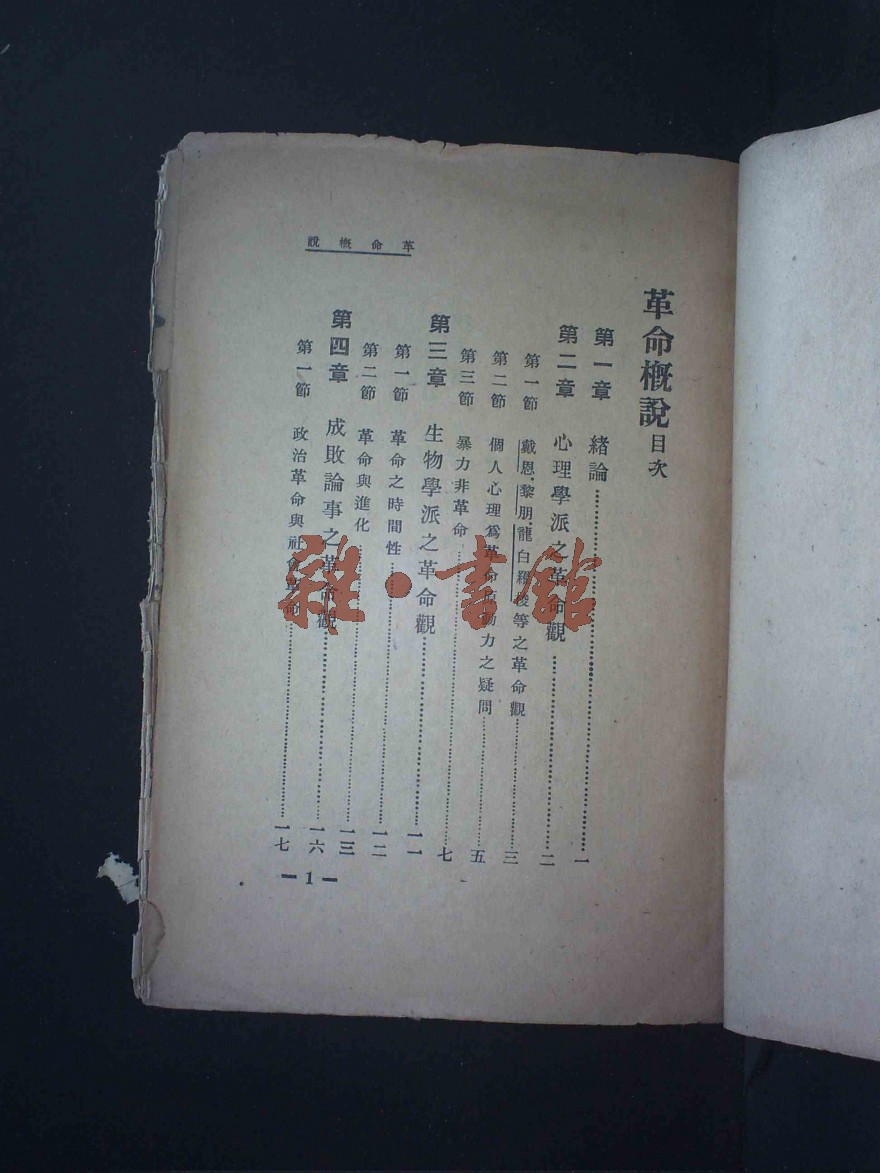 革命槪說
革命槪說目次
第一章　緒論……一
第二章　心理學派之革命觀……二
第一節　戴恩，黎朋，龍白羅梭等之革命觀……三
第二節　個人心理爲革命原動力之疑問……五
第三節　暴力非革命……七
第三章　生物學派之革命觀……一一
第一節　革命之時間性……一二
第二節　革命與進化……一三
第四章　成敗論事之革命觀……一六
第一節　政治革命與社會革命……一七
—1—
雜·書館